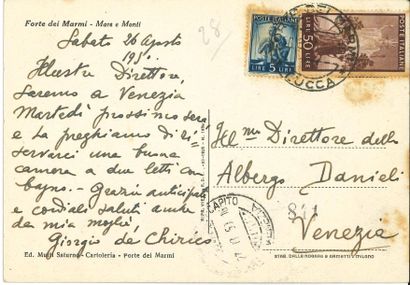 Forte dei Marmi - Mare e Monti
28
Sabato 26 Agosto
195
Illustre Direttore,
Saremo a Venezia
Martedì prossimo sera
e La preghiamo di ri=
servarci una buona
camera a due letti con
bagno. - Grazie anticipate
e cordiali saluti anche
da mia moglie,
Giorgio de Chirico
Ed. Saturno - Cartoleria - Forte dei Marmi
POSTE ITALIANE
LIRE 5 LIRE
POSTE ITALIANE
LIRE 50 LIRE
LUCCA
Ill mo Direttore dello
Albergo Danieli
Venezia
STAB. DALLE NOGARE & ARMETTI - MILANO